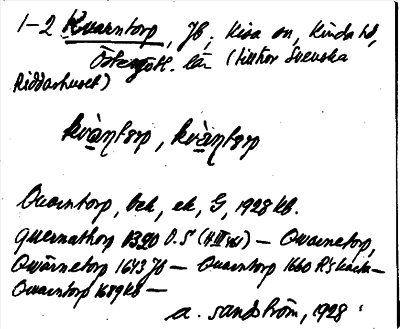 1-2 Kvarntorp, Jb, Kisa sn, Kinda hd,
Östergötl. län (tillhör Svenska
Riddarhuset)
kvàṇtorp, kvàṇtorp
Qvarntorp, bek, ek, G, 1928 kb.
quernathorp 1320 D.S (H III) — Qwarnetorp,
Qwarnetorp 1643 Jb — Qvarntorp 1660
Qvarntorp 1689 kb —
A. Sandström, 1928